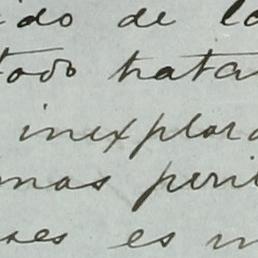 ido de lo
todo trata
inexplora
mas peri
ses es m